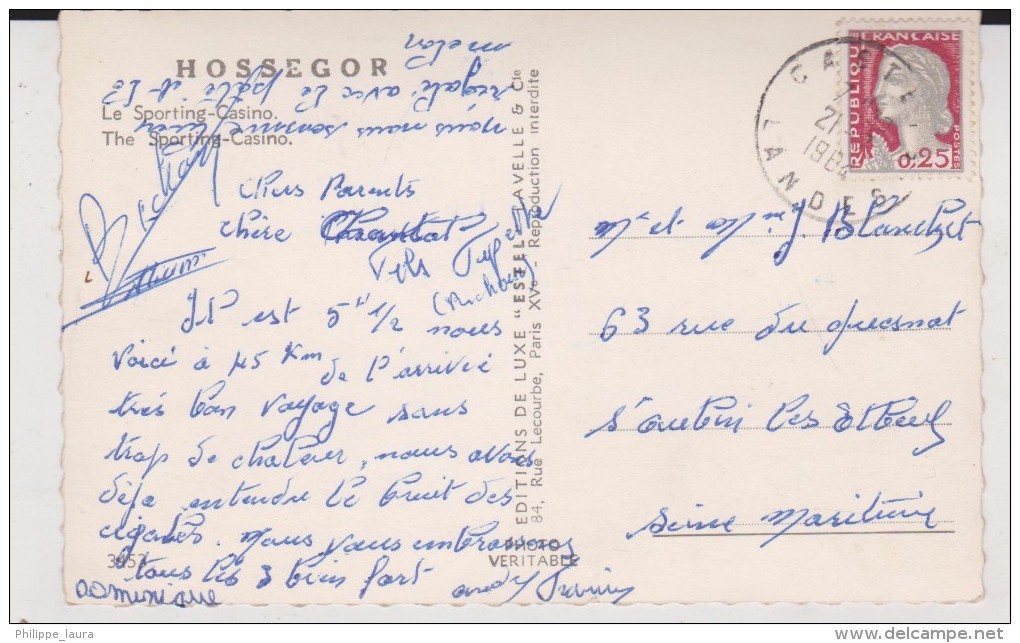 HOSSEGOR
Le Sporting-Casino.
The Sporting-Casino.
nous nous sommes
régalé avec le pâté et le
melon
Chers Parents
chère Chantal
Il est 5 H 1/2 nous
voici à 45 Km de l'arrivée
très bon voyage sans
trop de chaleur, nous avons
déja entendu le bruit des
cigales. Nous vous embrassons
tous les 3 bien fort
Dominique
3857
PHOTO
VERITABLE
EDITIONS DE LUXE "ESTEL" LAVELLE & Cie
84, Rue Lecourbe, Paris XVe - Reproduction interdite
REPUBLIQUE FRANCAISE
0,25
POSTES
LANDES
21
Mr et Mme J. Blanchet
63 rue du quesnot
St Aubin les Elbeuf
Seine Maritime
Philippe_laura
delcampe.net